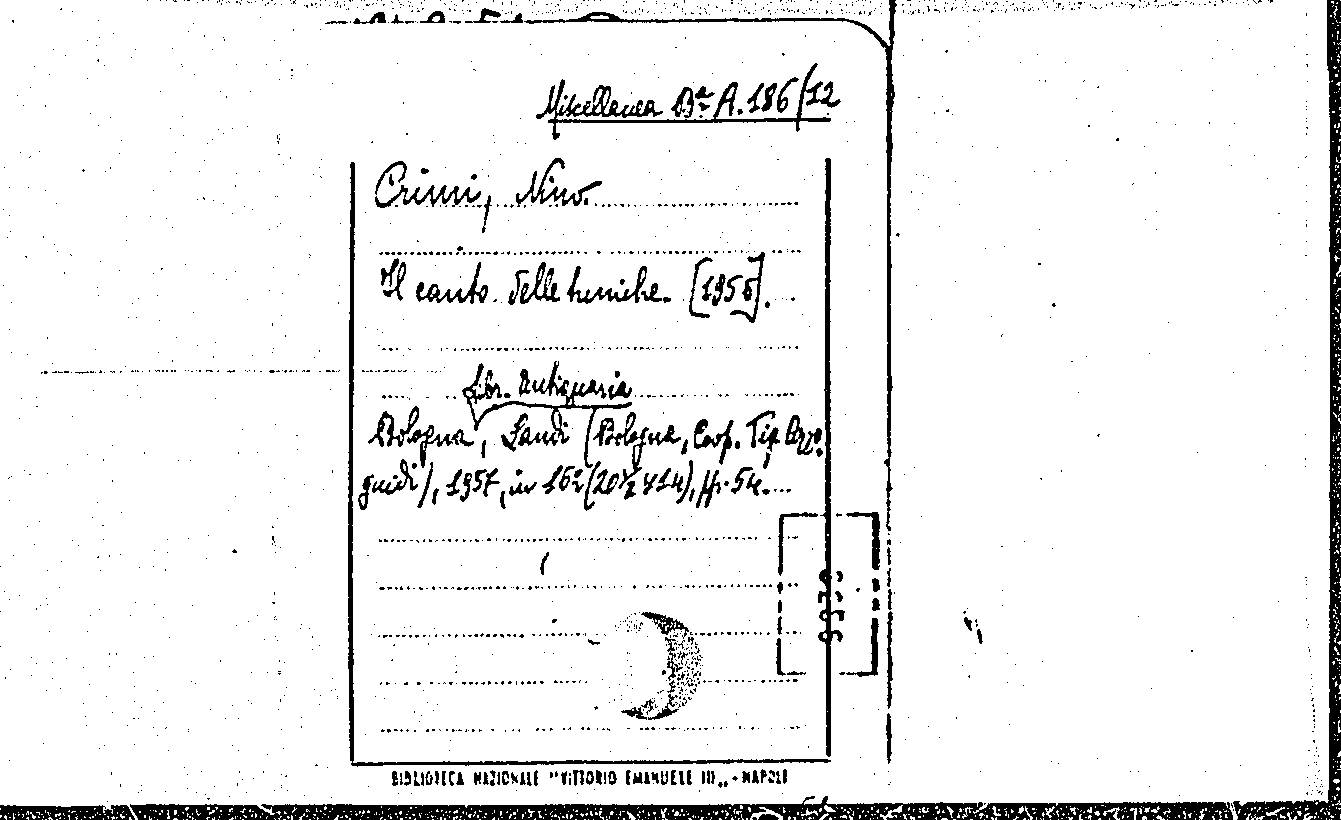 Miscellanea Bª A.186/12
Crimi, Nino.
Il canto delle tuniche. [1956].
Libr. Antiquaria
Bologna, Landi (Bologna, Coop. Tip. Azzo-
guidi), 1957, in 16º (20½ x 14), pp. 54.
BIBLIOTECA NAZIONALE "VITTORIO EMANUELE III„ - NAPOLI